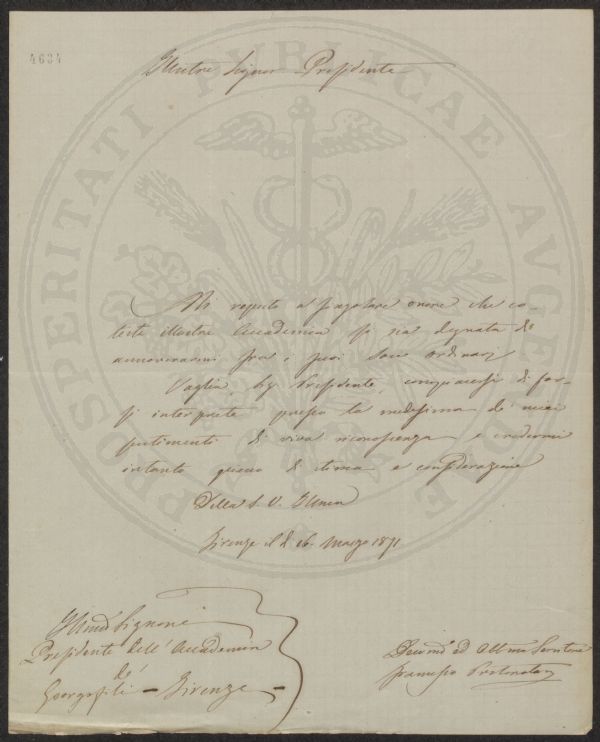 4634
Illustre Signor Presidente
Mi reputo a singolare onore che co-
testa illustre Accademia si sia degnata di
annoverarmi fra i suoi Soci ordinarj
Voglia, Sig. Presidente, compiacersi di far-
si interprete presso la medesima de' miei
sentimenti di viva riconoscenza e credermi
intanto pieno di stima e considerazione
Della S. V. Illma
Firenze il dì 16. Marzo 1871
Illmo Signore
Presidente dell' Accademia
de'
Georgofili - Firenze -
Devmo ed Obbmo Servitore
Francesco Protonotari
PROSPERITATI PUBLICAE AUGENDAE